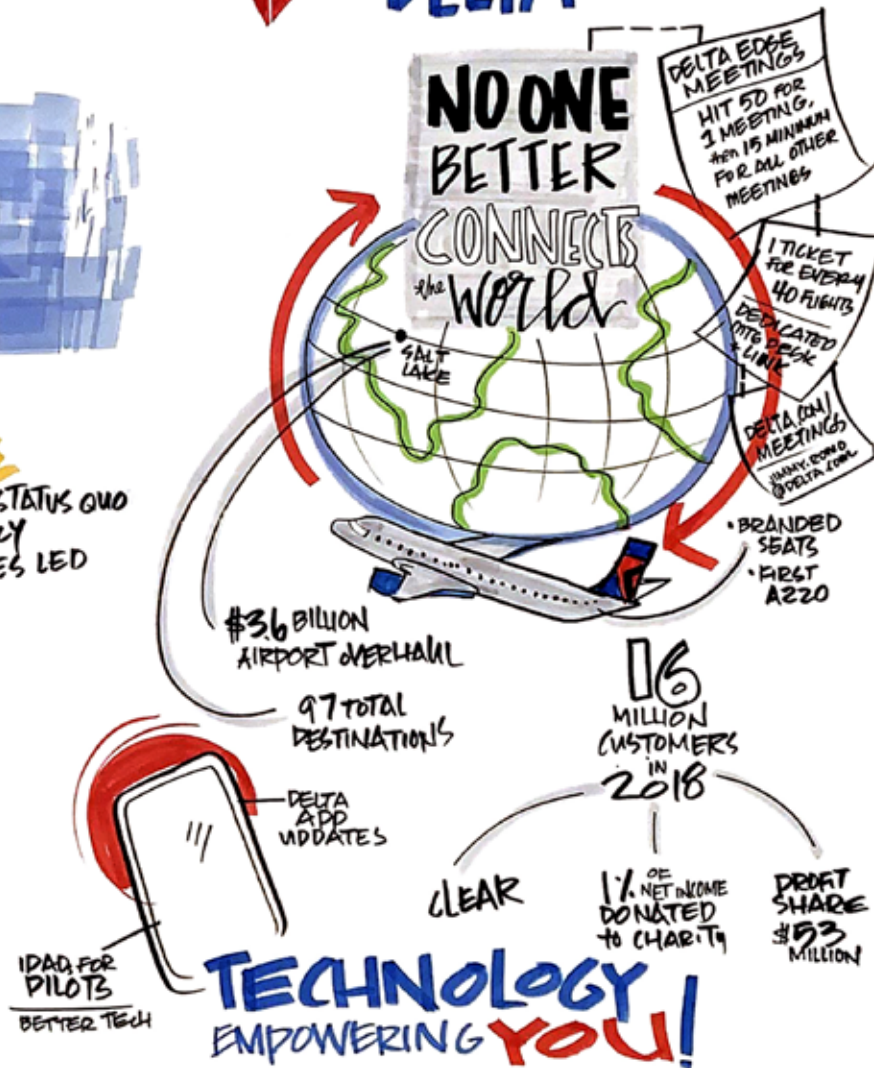 DELTA
NO ONE
BETTER
CONNECTS
the WORLD
SALT
LAKE
DELTA EDGE
MEETINGS
HIT 50 FOR
1 MEETING,
then 15 MINIMUM
FOR ALL OTHER
MEETINGS
1 TICKET
FOR EVERY
40 FLIGHTS
DEDICATED
MTG DESK
+ LINK
DELTA.COM/
MEETINGS
@DELTA.COM
• BRANDED
SEATS
• FIRST
A220
STATUS QUO
LED
$3.6 BILLION
AIRPORT OVERHAUL
97 TOTAL
DESTINATIONS
16
MILLION
CUSTOMERS
IN
2018
CLEAR
1% OF
NET INCOME
DONATED
to CHARITY
PROFIT
SHARE
$53
MILLION
DELTA
APP
UPDATES
IPAD FOR
PILOTS
BETTER TECH
TECHNOLOGY
EMPOWERING YOU!